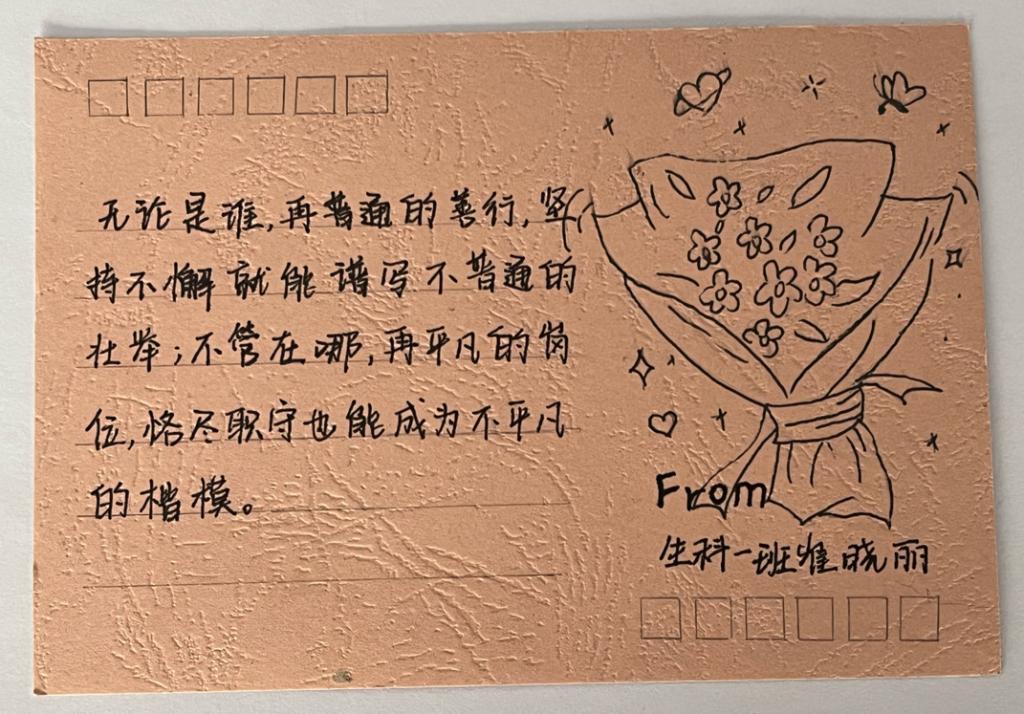 无论是谁,再普通的善行,坚
持不懈就能谱写不普通的
壮举;不管在哪,再平凡的岗
位,恪尽职守也能成为不平凡
的楷模。
From
生科一班崔晓丽